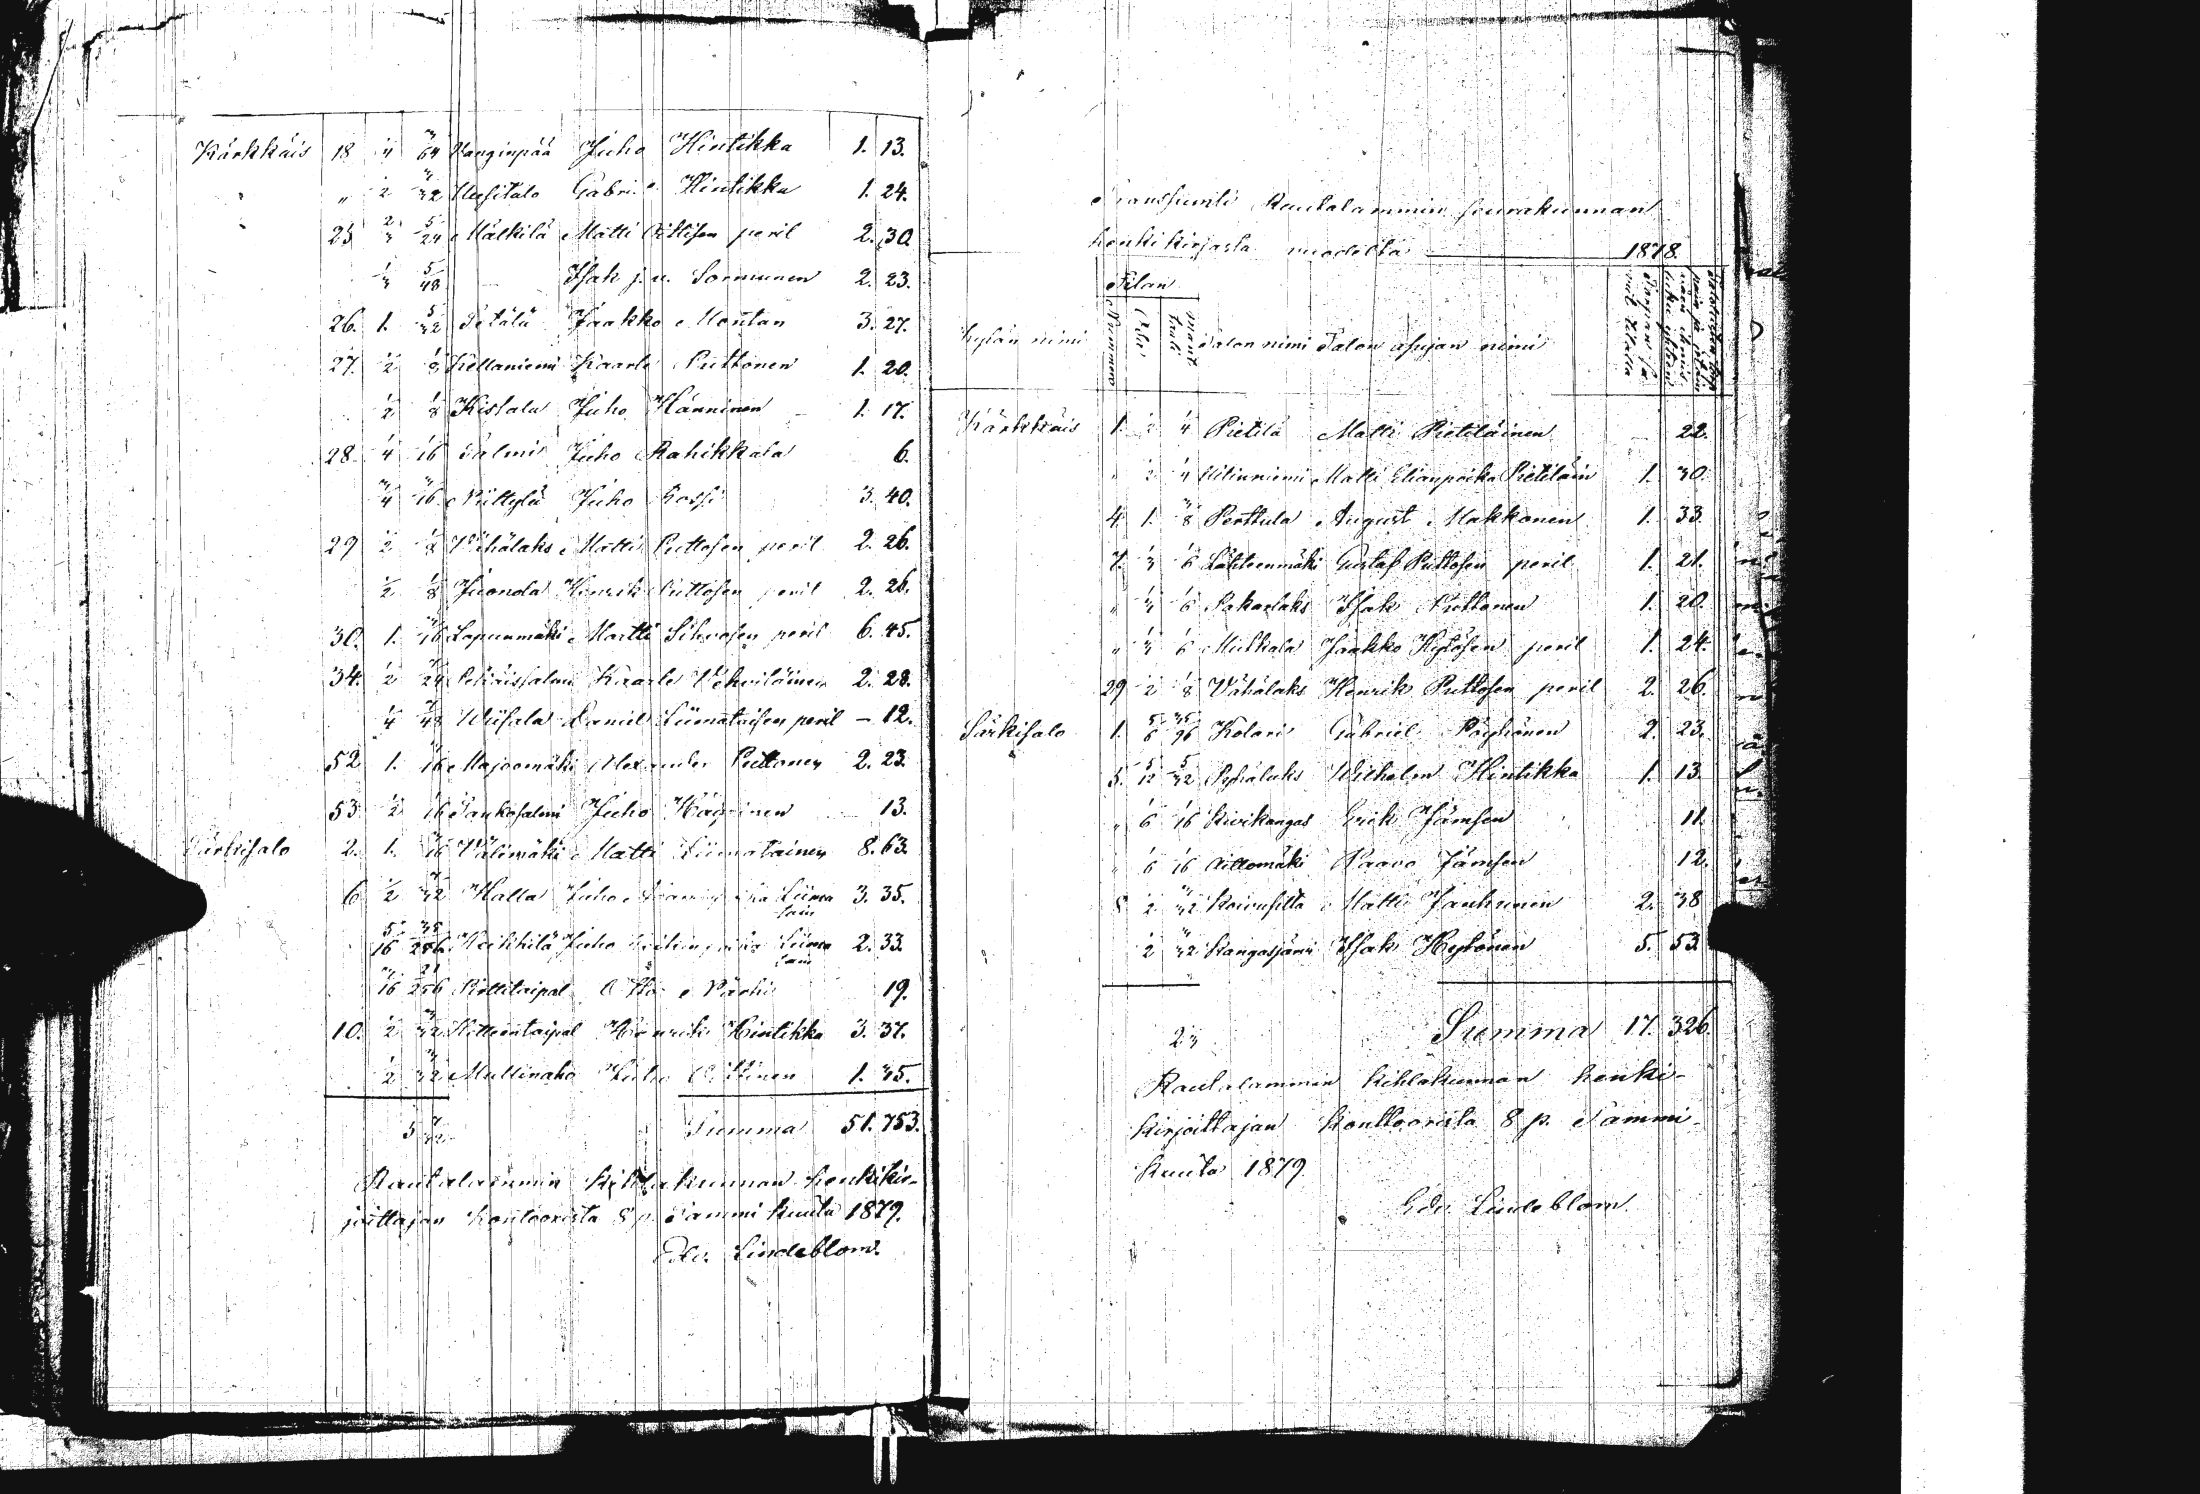 Kärkkäis 18 1/4 3/64 Kanginpää Juho Hintikka 1. 13.
" 1/2 3/32 Uusitalo Gabriel Hintikka 1. 24.
25 2/3 5/24 Mälkilä Matti Aittisen peril 2. 30
1/3 5/48 Isak j. u. Sormunen 2. 23.
26. 1. 5/32 Petälä Jaakko Montan 3. 27.
27. 1/2 1/8 Kellaniemi Kaarle Puttonen 1. 20.
1/2 1/8 Kistala Juho Hänninen 1. 17.
28. 1/4 1/16 Salmi Juho Rahikkala 6.
3/4 3/16 Niittylä Juho Rossi 3. 40.
29 1/2 1/8 Vähälaks Matti Puttosen peril 2. 26.
1/2 1/8 Juonola Henrik Puttosen peril 2. 26.
30. 1. 3/16 Lapunmäki Martti Sihvosen peril 6. 45.
34. 1/2 24 Kaarle Vehviläinen 2. 28.
1/4 48 Daniel Liimataisen peril – 12.
52 1. 3/16 Majoomäki Alexander Puttonen 2. 23.
53 1/2 1/16 Juho Häyrinen 13.
Särkisalo 2. 1. 3/16 Välimäki Matti Liimatainen 8. 63.
6 1/2 3/32 Halla Juho Liimatain 3. 35.
5/16 35/256 Juho Liimatain 2. 33.
3/16 21/256 Otto Närhi 19.
10. 1/2 3/32 Henrik Hintikka 3. 37.
1/2 3/32 Mullinaho Juho 1. 35.
Summa 51. 753.
Rautalammin kihlakunnan henkikir-
joittajan konttoorista 8 p. Tammikuuta 1879.
Edv. Lindeblom.
Transsumti Rautalammin seurakunnan
henkikirjasta vuodelta 1878.
Tilan
Kylän nimi Nummero Osa mant. tali Talon nimi Talon asujan nimi
Kärkkäis 1. 1/2 1/4 Pietilä Matti Pietiläinen 22.
" 1/2 1/4 Niliniemi Matti Elianpoika Pietiläin 1. 30.
4. 1. 3/8 Perttula August Makkonen 1. 33.
7. 1/3 1/6 Lähteenmäki Gustaf Puttosen peril 1. 21.
" 1/3 1/6 Pakarlaks Isak Puttonen 1. 20.
" 1/3 1/6 Mikkala Jaakko Hytösen peril 1. 24.
29 1/2 1/8 Vähälaks Henrik Puttosen peril 2. 26.
Särkisalo 1. 5/6 35/96 Kolari Gabriel Pöyhönen 2. 23.
5. 5/12 5/32 Pyhälaks Wilhelm Hintikka 1. 13.
" 1/6 1/16 Kivikangas Erik Jämsen 11.
" 1/6 1/16 Aittomäki Paavo Jämsen 12.
8 1/2 3/32 Koivusilta Matti Janhunen 2. 38
1/2 3/32 Kangasjärvi Isak Hytönen 5. 53.
Summa 17. 326.
Rautalammin kihlakunnan henki-
kirjoittajan konttoorista 8 p. Tammi-
kuuta 1879
Edv. Lindeblom.